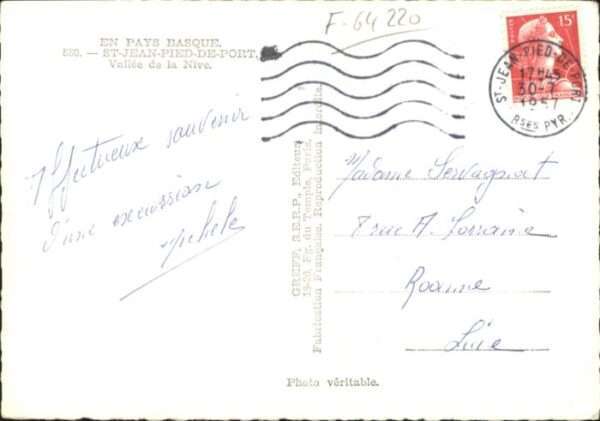 F-64 220
EN PAYS BASQUE.
530. — ST-JEAN-PIED-DE-PORT.
Vallée de la Nive.
Affectueux souvenir
d'une excursion
Michele
GREFF, S.E.R.P., Editeur
18-20, Fg. du Temple, Paris.
Fabrication Française. Reproduction Interdite.
Photo véritable.
15F
ST-JEAN-PIED-DE-PORT
17H45
30-7
1957
BSES PYR.
Madame Servagnat
7 rue A. Lorraine
Roanne
Loire